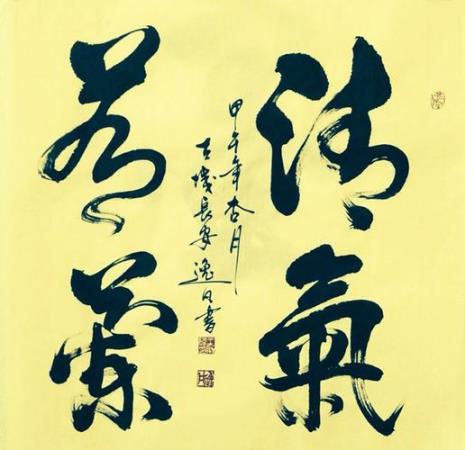 清氣
若蘭
甲午年杏月
古城長安逸凡書